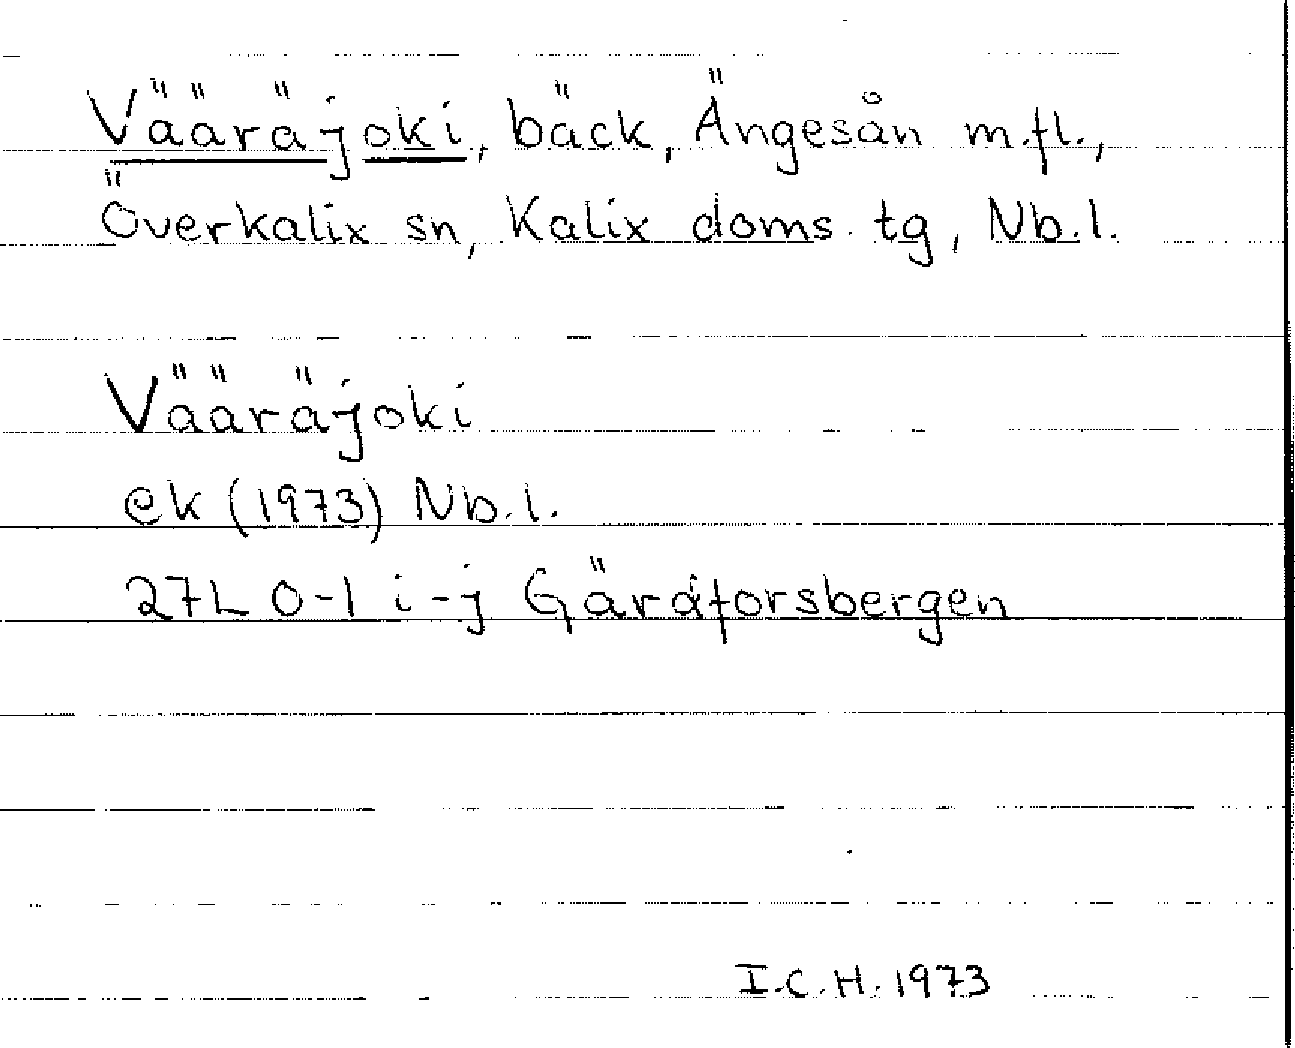 Vääräjoki, bäck, Ängesån m.fl.,
Överkalix sn, Kalix doms. tg, Nb.l.
Vääräjoki
ek (1973) Nb.l.
27L 0-1 i-j Gärdforsbergen
I.C.H. 1973